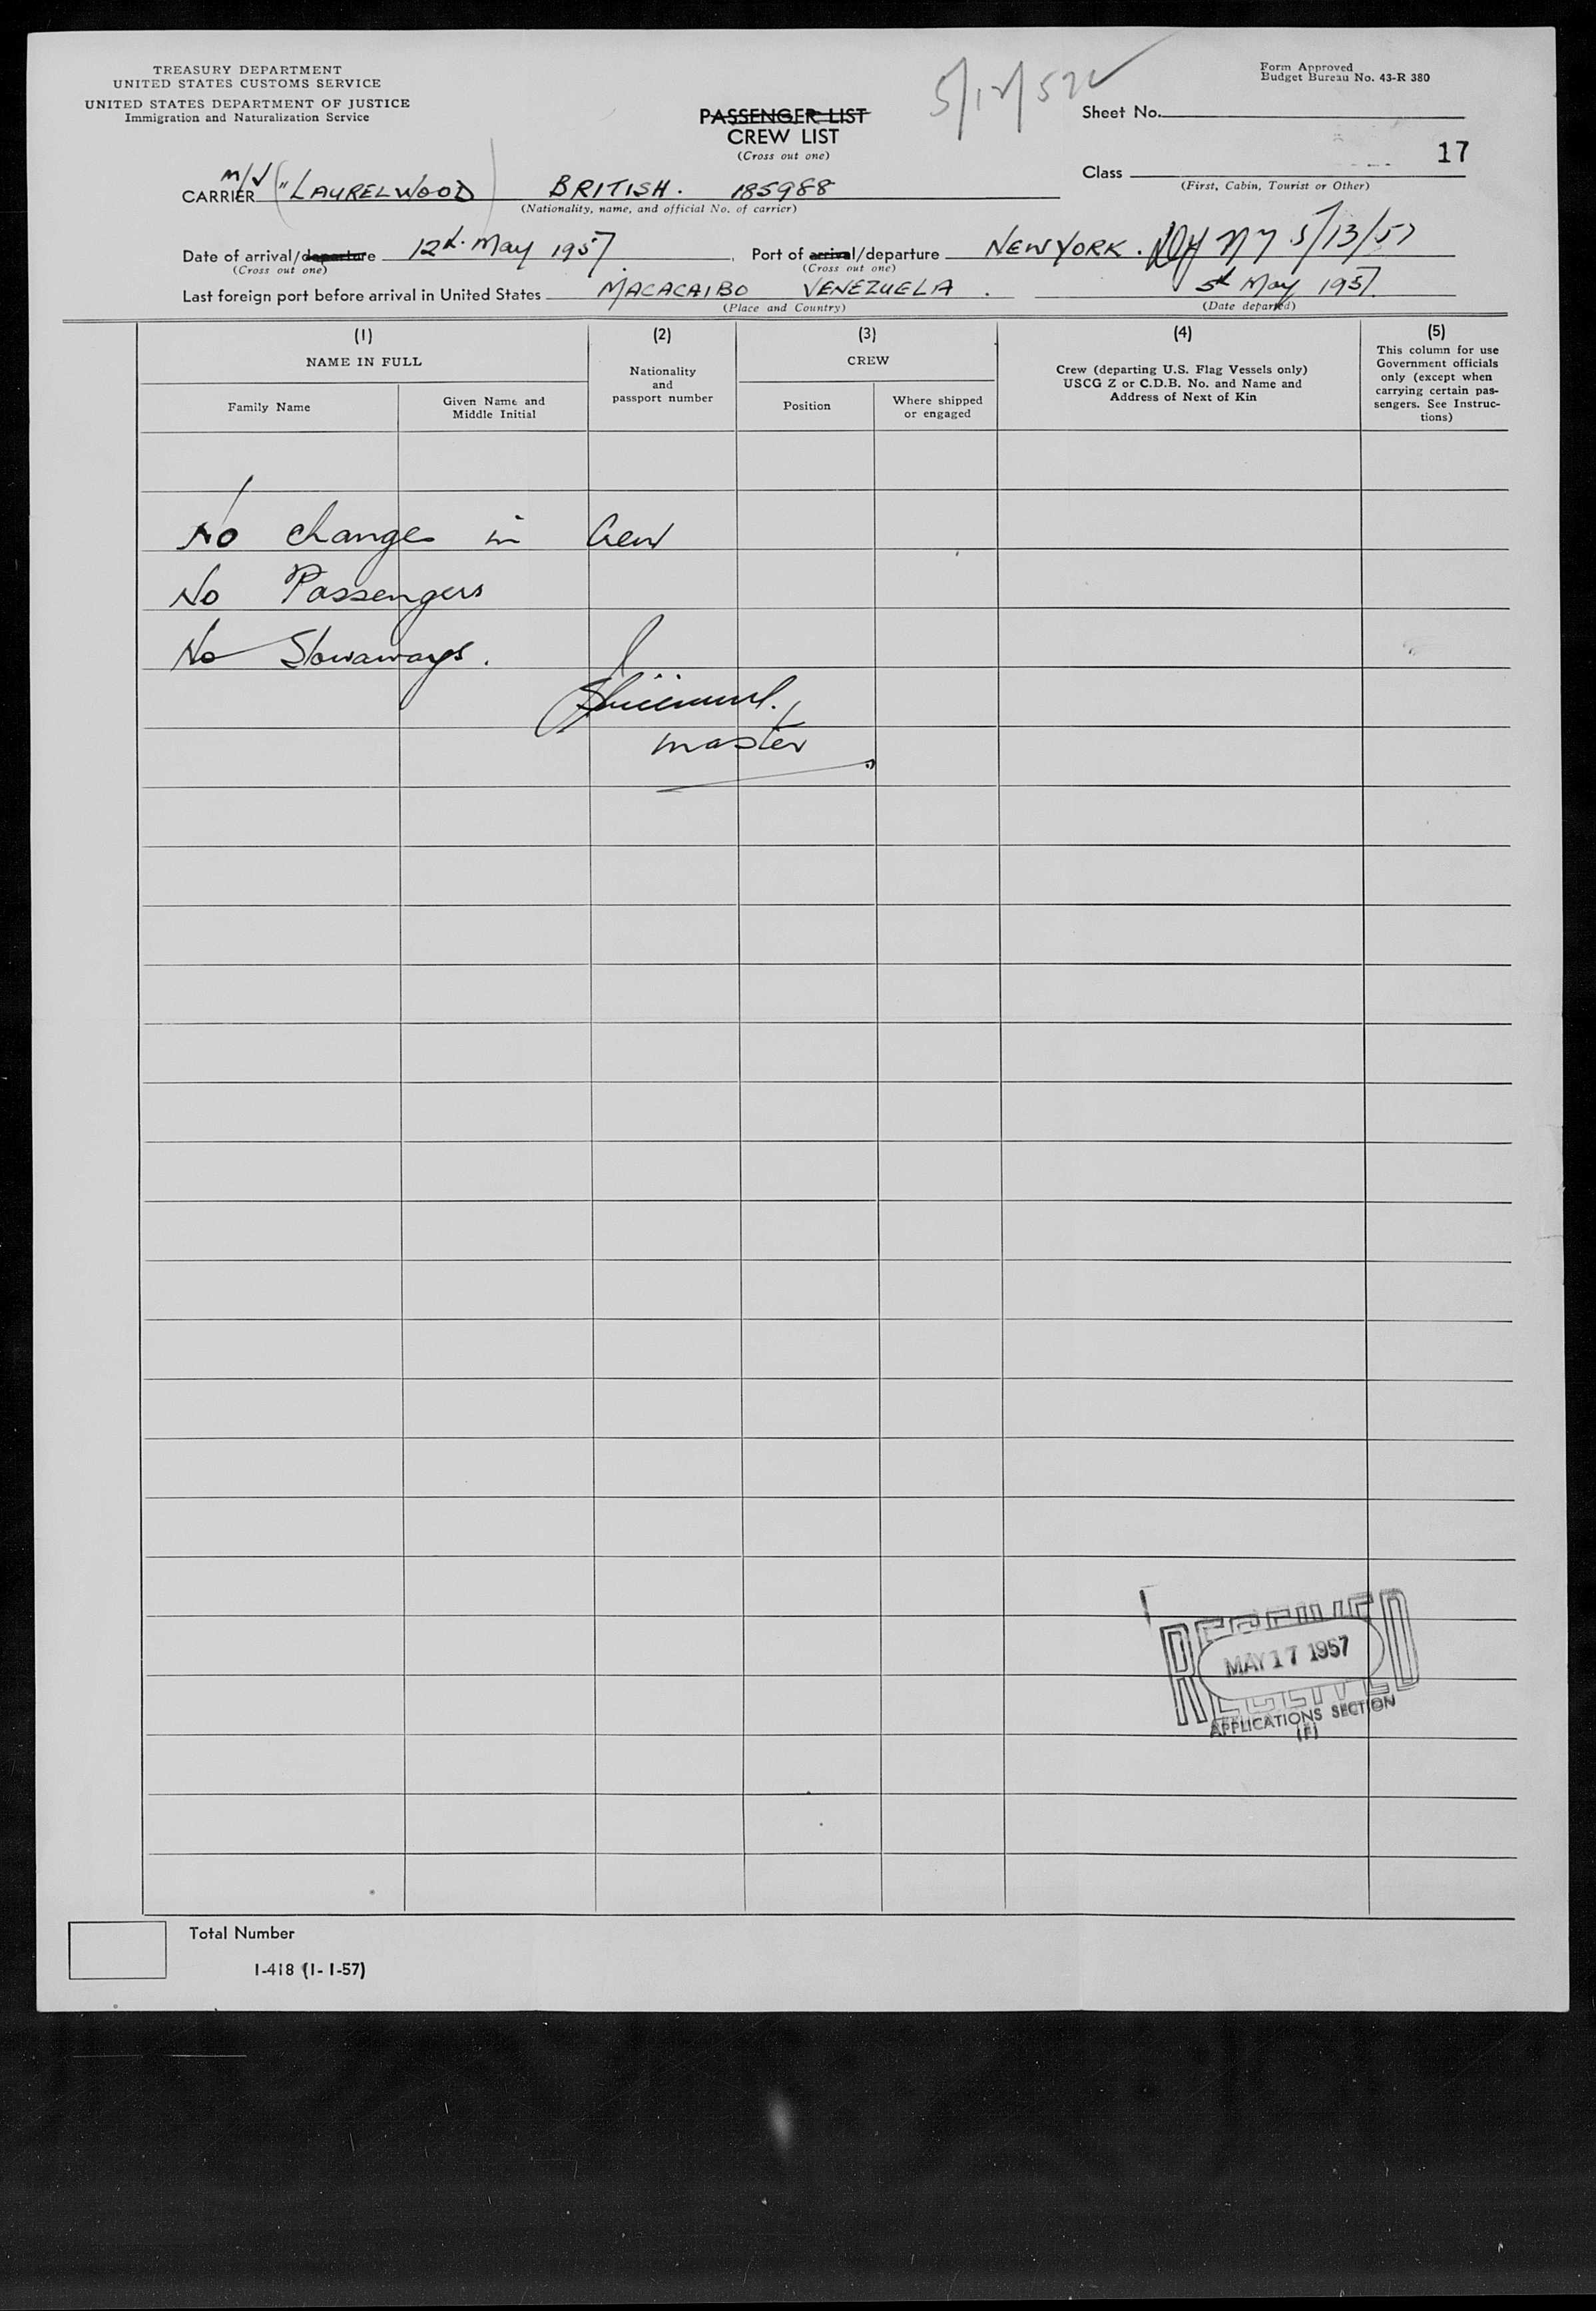 TREASURY DEPARTMENT
UNITED STATES CUSTOMS SERVICE
UNITED STATES DEPARTMENT OF JUSTICE
Immigration and Naturalization Service
Form Approved
Budget Bureau No. 43-R 380
PASSENGER LIST
CREW LIST
(Cross out one)
Sheet No.
17
Class
(First, Cabin, Tourist or Other)
CARRIER M/V "LAURELWOOD BRITISH. 185988
(Nationality, name, and official No. of carrier)
Date of arrival/departure 12th May 1957. Port of arrival/departure NEW YORK. NY 5/13/57
(Cross out one) (Cross out one)
Last foreign port before arrival in United States MACACAIBO VENEZUELA. 5th May 1957.
(Place and Country) (Date departed)
(1) (2) (3) (4) (5)
NAME IN FULL
Family Name
Given Name and
Middle Initial
Nationality
and
passport number
CREW
Position
Where shipped
or engaged
Crew (departing U.S. Flag Vessels only)
USCG Z or C.D.B. No. and Name and
Address of Next of Kin
This column for use
Government officials
only (except when
carrying certain pas-
sengers. See Instruc-
tions)
No changes in Crew
No Passengers
No Stowaways.
master
RECEIVED
MAY 17 1957
APPLICATIONS SECTION
(F)
Total Number
I-418 (1-1-57)